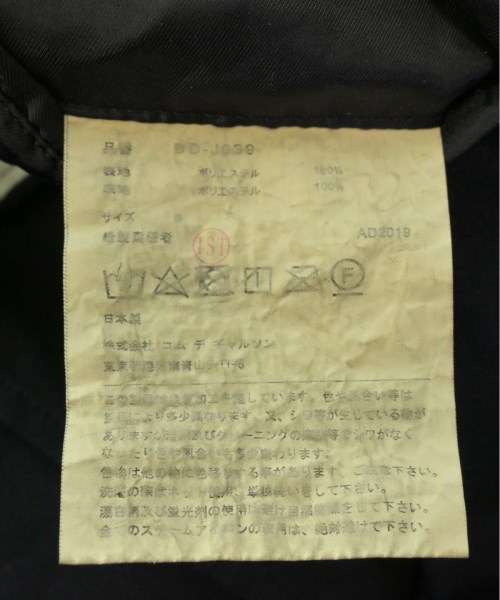 品番 OD-J039
表地 ポリエステル 100%
裏地 ポリエステル 100%
サイズ S
縫製責任者 AD2019
F
日本製
株式会社 コム デ ギャルソン
東京都港区南青山
この製品は 加工を施しています。色や風合い等は
製品により多少異なります。又、シワ等が生じている物が
ありますが洗濯及びクリーニングの 等でシワがなく
なったり色や風合いも多少変わります。
色物は他の物に色移りする事があります、ご注意下さい。
洗濯の際はネット使用、単独洗いをして下さい。
漂白剤及び蛍光剤の使用は避け自然乾燥をして下さい。
全てのスチームアイロンの使用は、絶対避けて下さい。